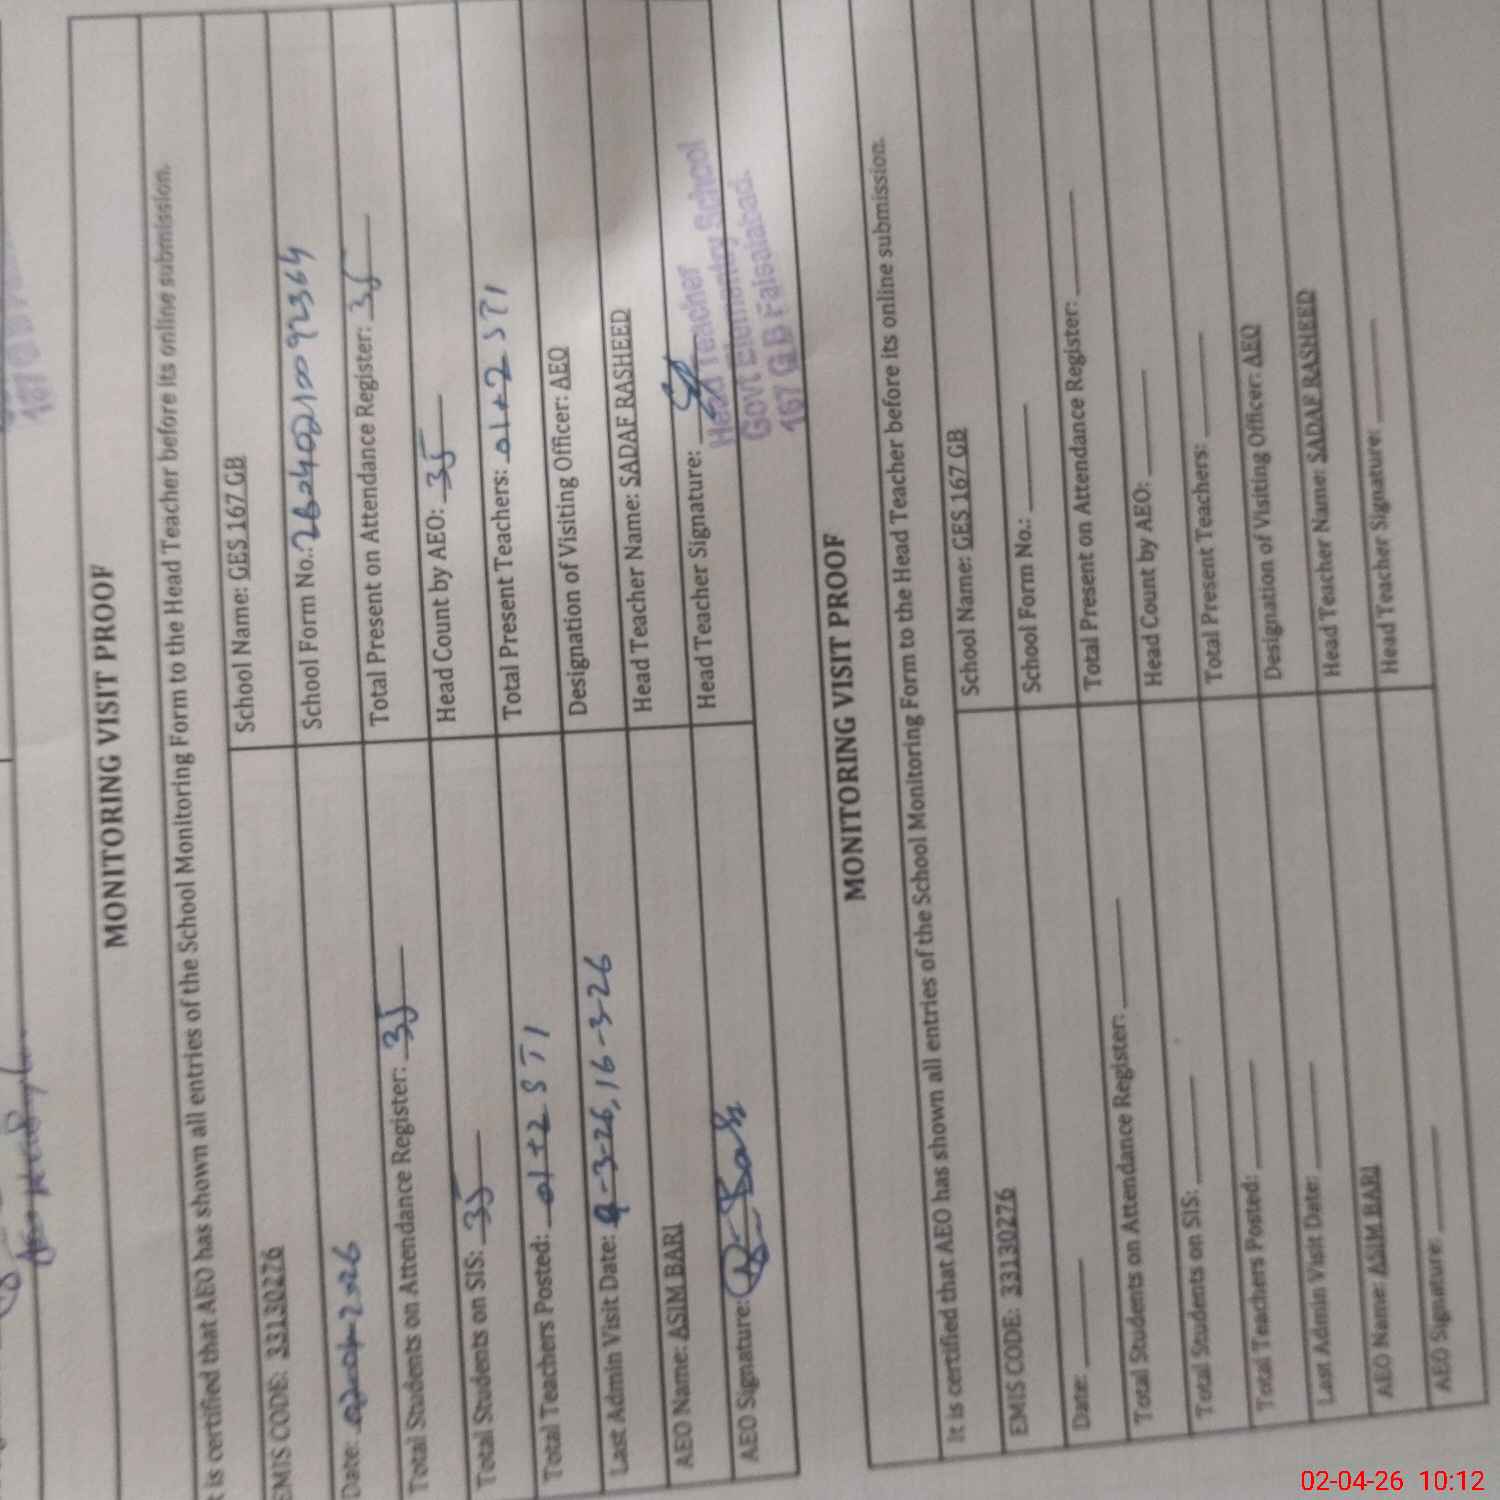 MONITORING VISIT PROOF
is certified that AEO has shown all entries of the School Monitoring Form to the Head Teacher before its online submission.
EMIS CODE: 33130276 School Name: GES 167 GB
Date: School Form No.:
Total Students on Attendance Register: 35 Total Present on Attendance Register: 35
Total Students on SIS: 35 Head Count by AEO: 35
Total Teachers Posted: 01+2 STI Total Present Teachers: 01+2 STI
Last Admin Visit Date: 9-3-26, 16-3-26 Designation of Visiting Officer: AEO
AEO Name: ASIM BARI Head Teacher Name: SADAF RASHEED
AEO Signature: Head Teacher Signature:
Head Teacher
Govt Elementry School
167 G B Faisalabad.
MONITORING VISIT PROOF
It is certified that AEO has shown all entries of the School Monitoring Form to the Head Teacher before its online submission.
EMIS CODE: 33130276 School Name: GES 167 GB
Date: School Form No.:
Total Students on Attendance Register: Total Present on Attendance Register:
Total Students on SIS: Head Count by AEO:
Total Teachers Posted: Total Present Teachers:
Last Admin Visit Date: Designation of Visiting Officer: AEO
AEO Name: ASIM BARI Head Teacher Name: SADAF RASHEED
AEO Signature: Head Teacher Signature:
02-04-26 10:12